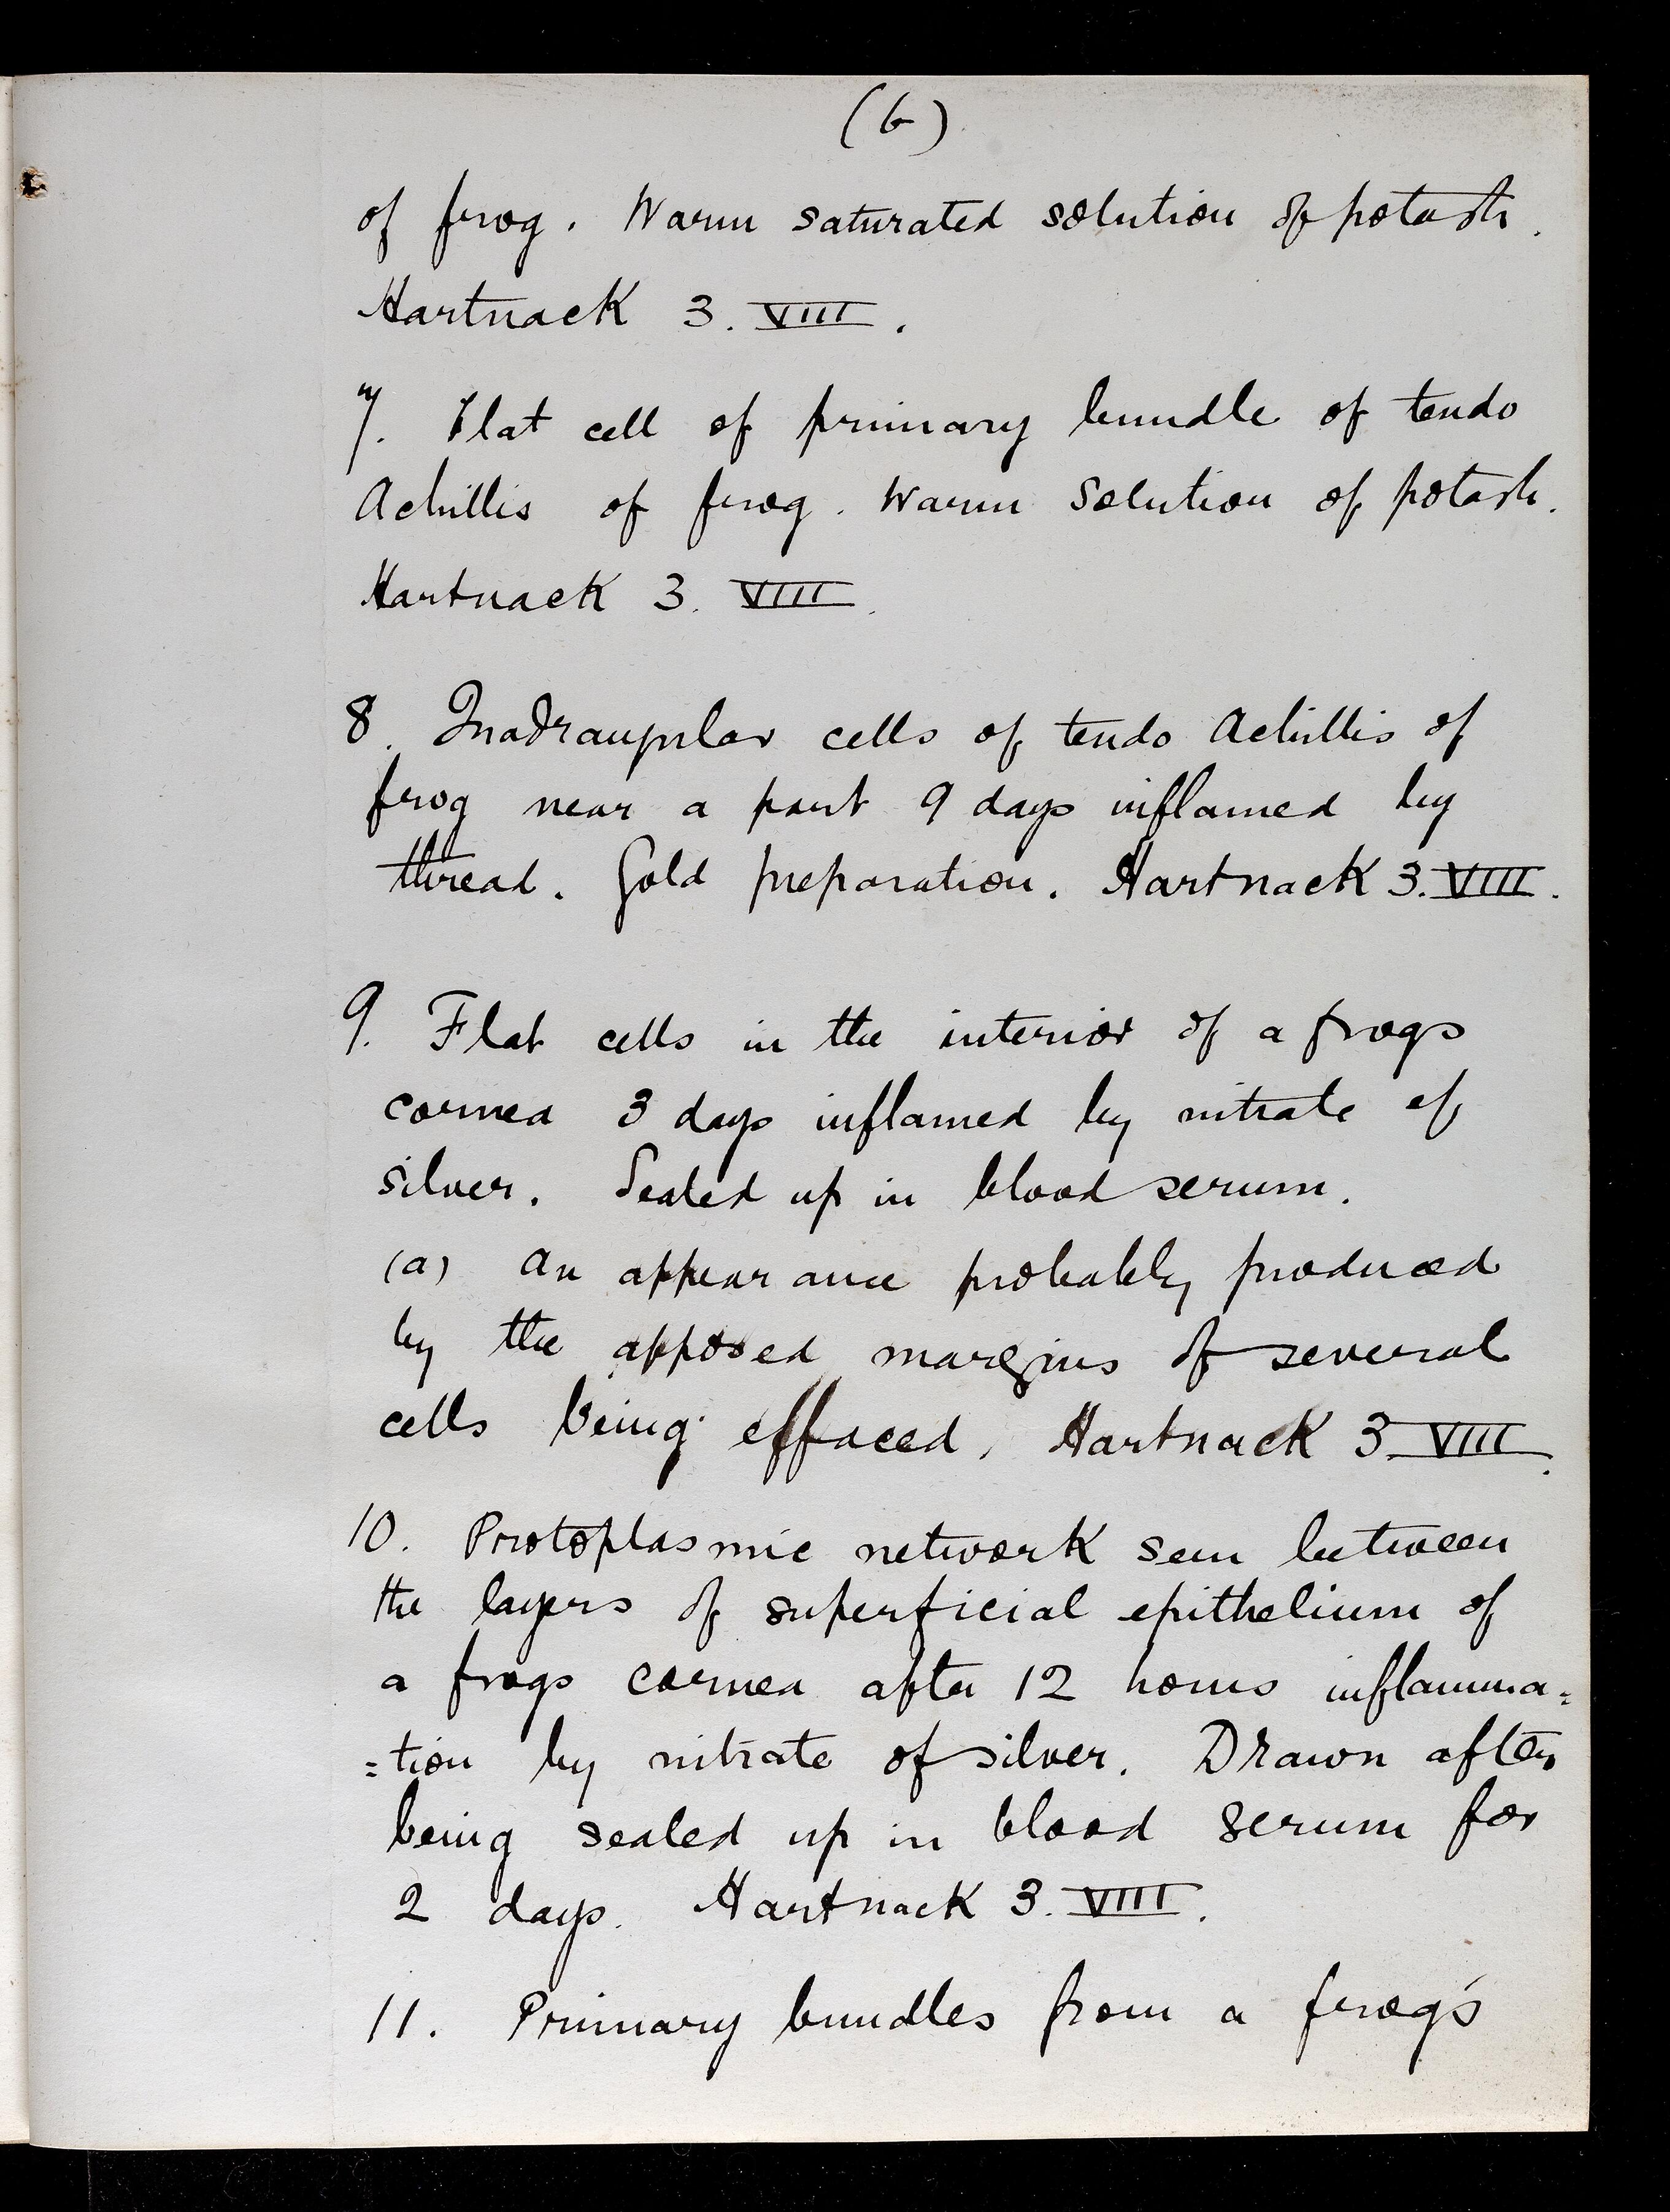 (6)
of frog. Warm saturated solution of potash.
Hartnack 3. VIIII.
7. Flat cell of primary bundle of tendo
Achillis of frog. Warm solution of potash.
Hartnack 3. VIIII.
8. Quadrangular cells of tendo Achillis of
frog near a part 9 days inflamed by
thread. Gold preparation. Hartnack 3. VIIII.
9. Flat cells in the interior of a frogs
cornea 3 days inflamed by nitrate of
silver. Sealed up in blood serum.
(a) An appearance probably produced
by the apposed margins of several
cells being effaced. Hartnack 3 VIII.
10. Protoplasmic network seen between
the layers of superficial epithelium of
a frogs cornea after 12 hours inflamma=
=tion by nitrate of silver. Drawn after
being sealed up in blood serum for
2 days. Hartnack 3. VIIII.
11. Primary bundles from a frog's